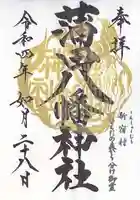 奉拝
新宿村
蒲田八幡神社
令和四年如月二十八日